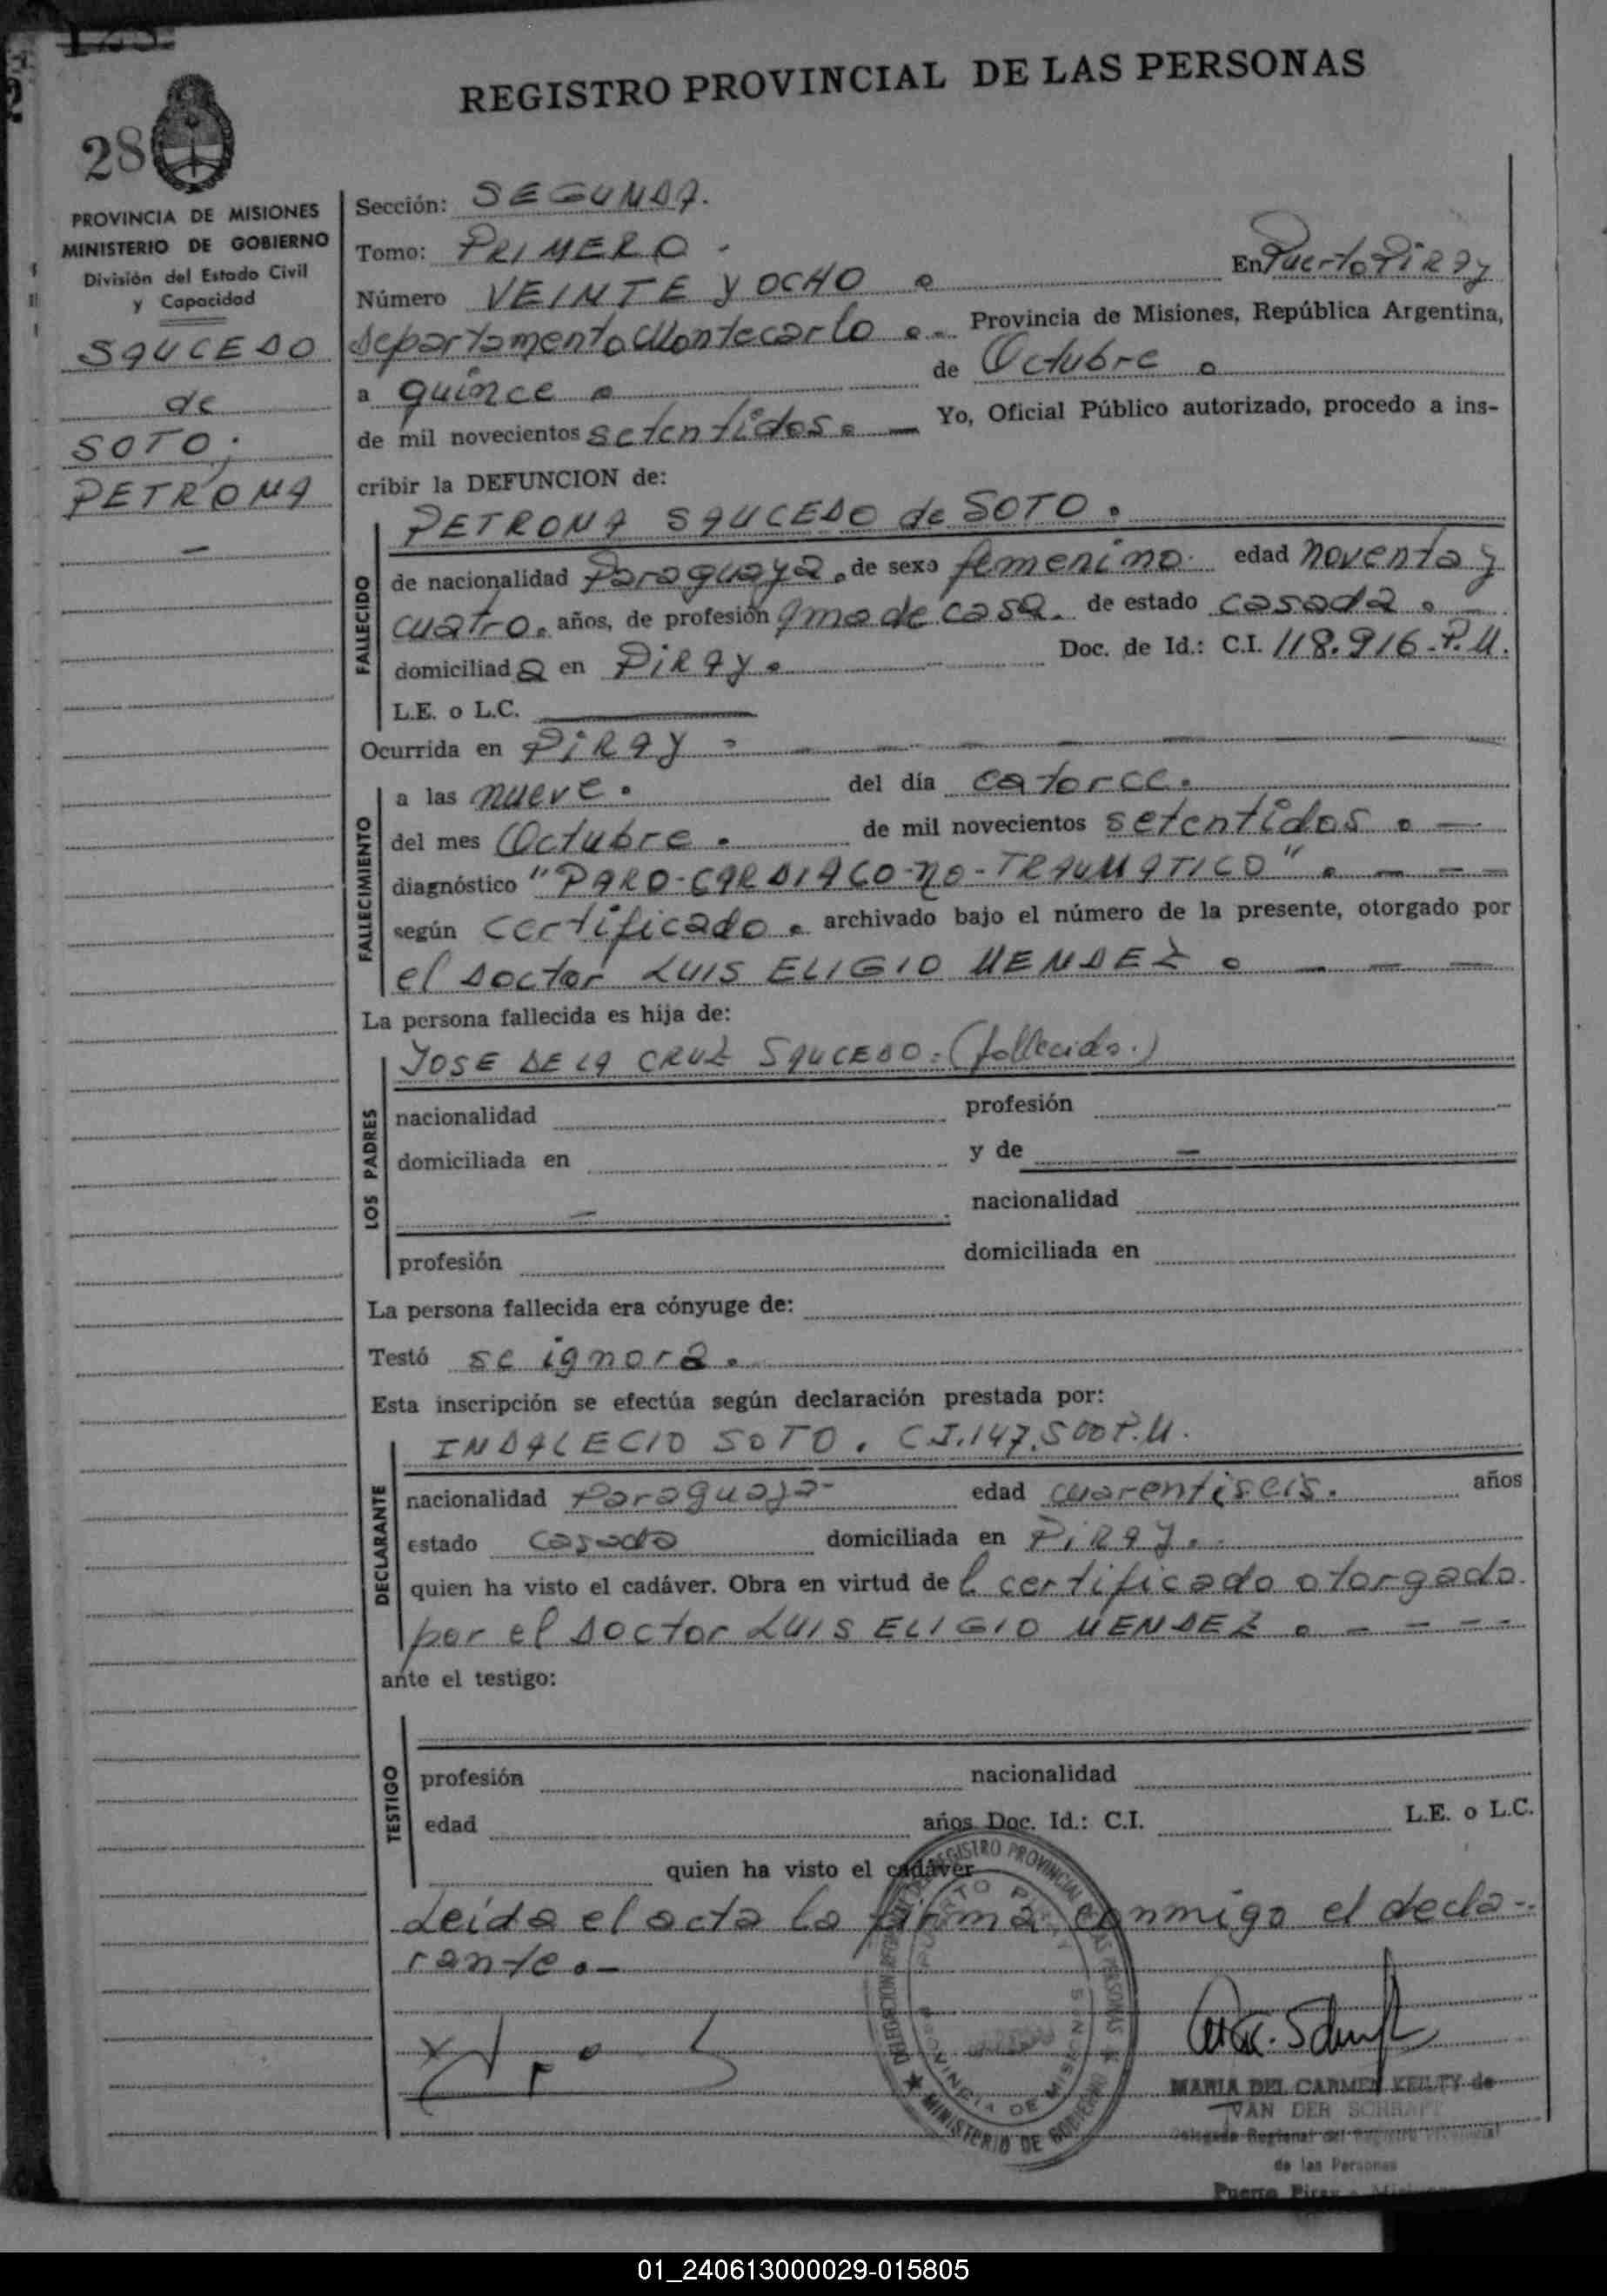 REGISTRO PROVINCIAL DE LAS PERSONAS
28
PROVINCIA DE MISIONES
MINISTERIO DE GOBIERNO
División del Estado Civil
y Capacidad
SAUCEDO
de
SOTO;
PETRONA
Sección: SEGUNDA.
Tomo: PRIMERO.
Número VEINTE Y OCHO En Puerto PiRAy
departamento Montecarlo Provincia de Misiones, República Argentina,
a quince de Octubre
de mil novecientos setentidos. Yo, Oficial Público autorizado, procedo a ins-
cribir la DEFUNCION de:
FALLECIDO
PETRONA SAUCEDO de SOTO.
de nacionalidad Paraguaya, de sexo femenino. edad noventa y
cuatro. años, de profesión Ama de casa. de estado casada.
domiciliada en PiRAy. Doc. de Id.: C.I. 118.916.P.M.
L.E. o L.C.
Ocurrida en PiRAy
FALLECIMIENTO
a las nueve. del día catorce.
del mes Octubre. de mil novecientos setentidos
diagnóstico "PARO-CARDIACO-NO-TRAUMATICO"
según certificado. archivado bajo el número de la presente, otorgado por
el Doctor LUIS ELIGIO MENDEZ
La persona fallecida es hija de:
LOS PADRES
JOSE DE LA CRUZ SAUCEDO. (fallecido.)
nacionalidad profesión
domiciliada en y de
nacionalidad
profesión domiciliada en
La persona fallecida era cónyuge de:
Testó se ignora.
Esta inscripción se efectúa según declaración prestada por:
DECLARANTE
INDALECIO SOTO. C.I.147.500 P.M.
nacionalidad Paraguaya edad cuarentiseis. años
estado casado domiciliada en PiRAy.
quien ha visto el cadáver. Obra en virtud del certificado otorgado
por el Doctor LUIS ELIGIO MENDEZ
ante el testigo:
TESTIGO
profesión nacionalidad
edad años Doc. Id.: C.I. L.E. o L.C.
quien ha visto el cadáver
Leída el acta la firma conmigo el decla-
rante.
DELEGACION REGISTRO PROVINCIAL DE LAS PERSONAS
PUERTO PIRAY
PROVINCIA DE MISIONES
MINISTERIO DE GOBIERNO
MARIA DEL CARMEN KEILTY de
VAN DER SCHRAFT
Delegada Regional del Registro Provincial
de las Personas
Puerto Piray
01_240613000029-015805